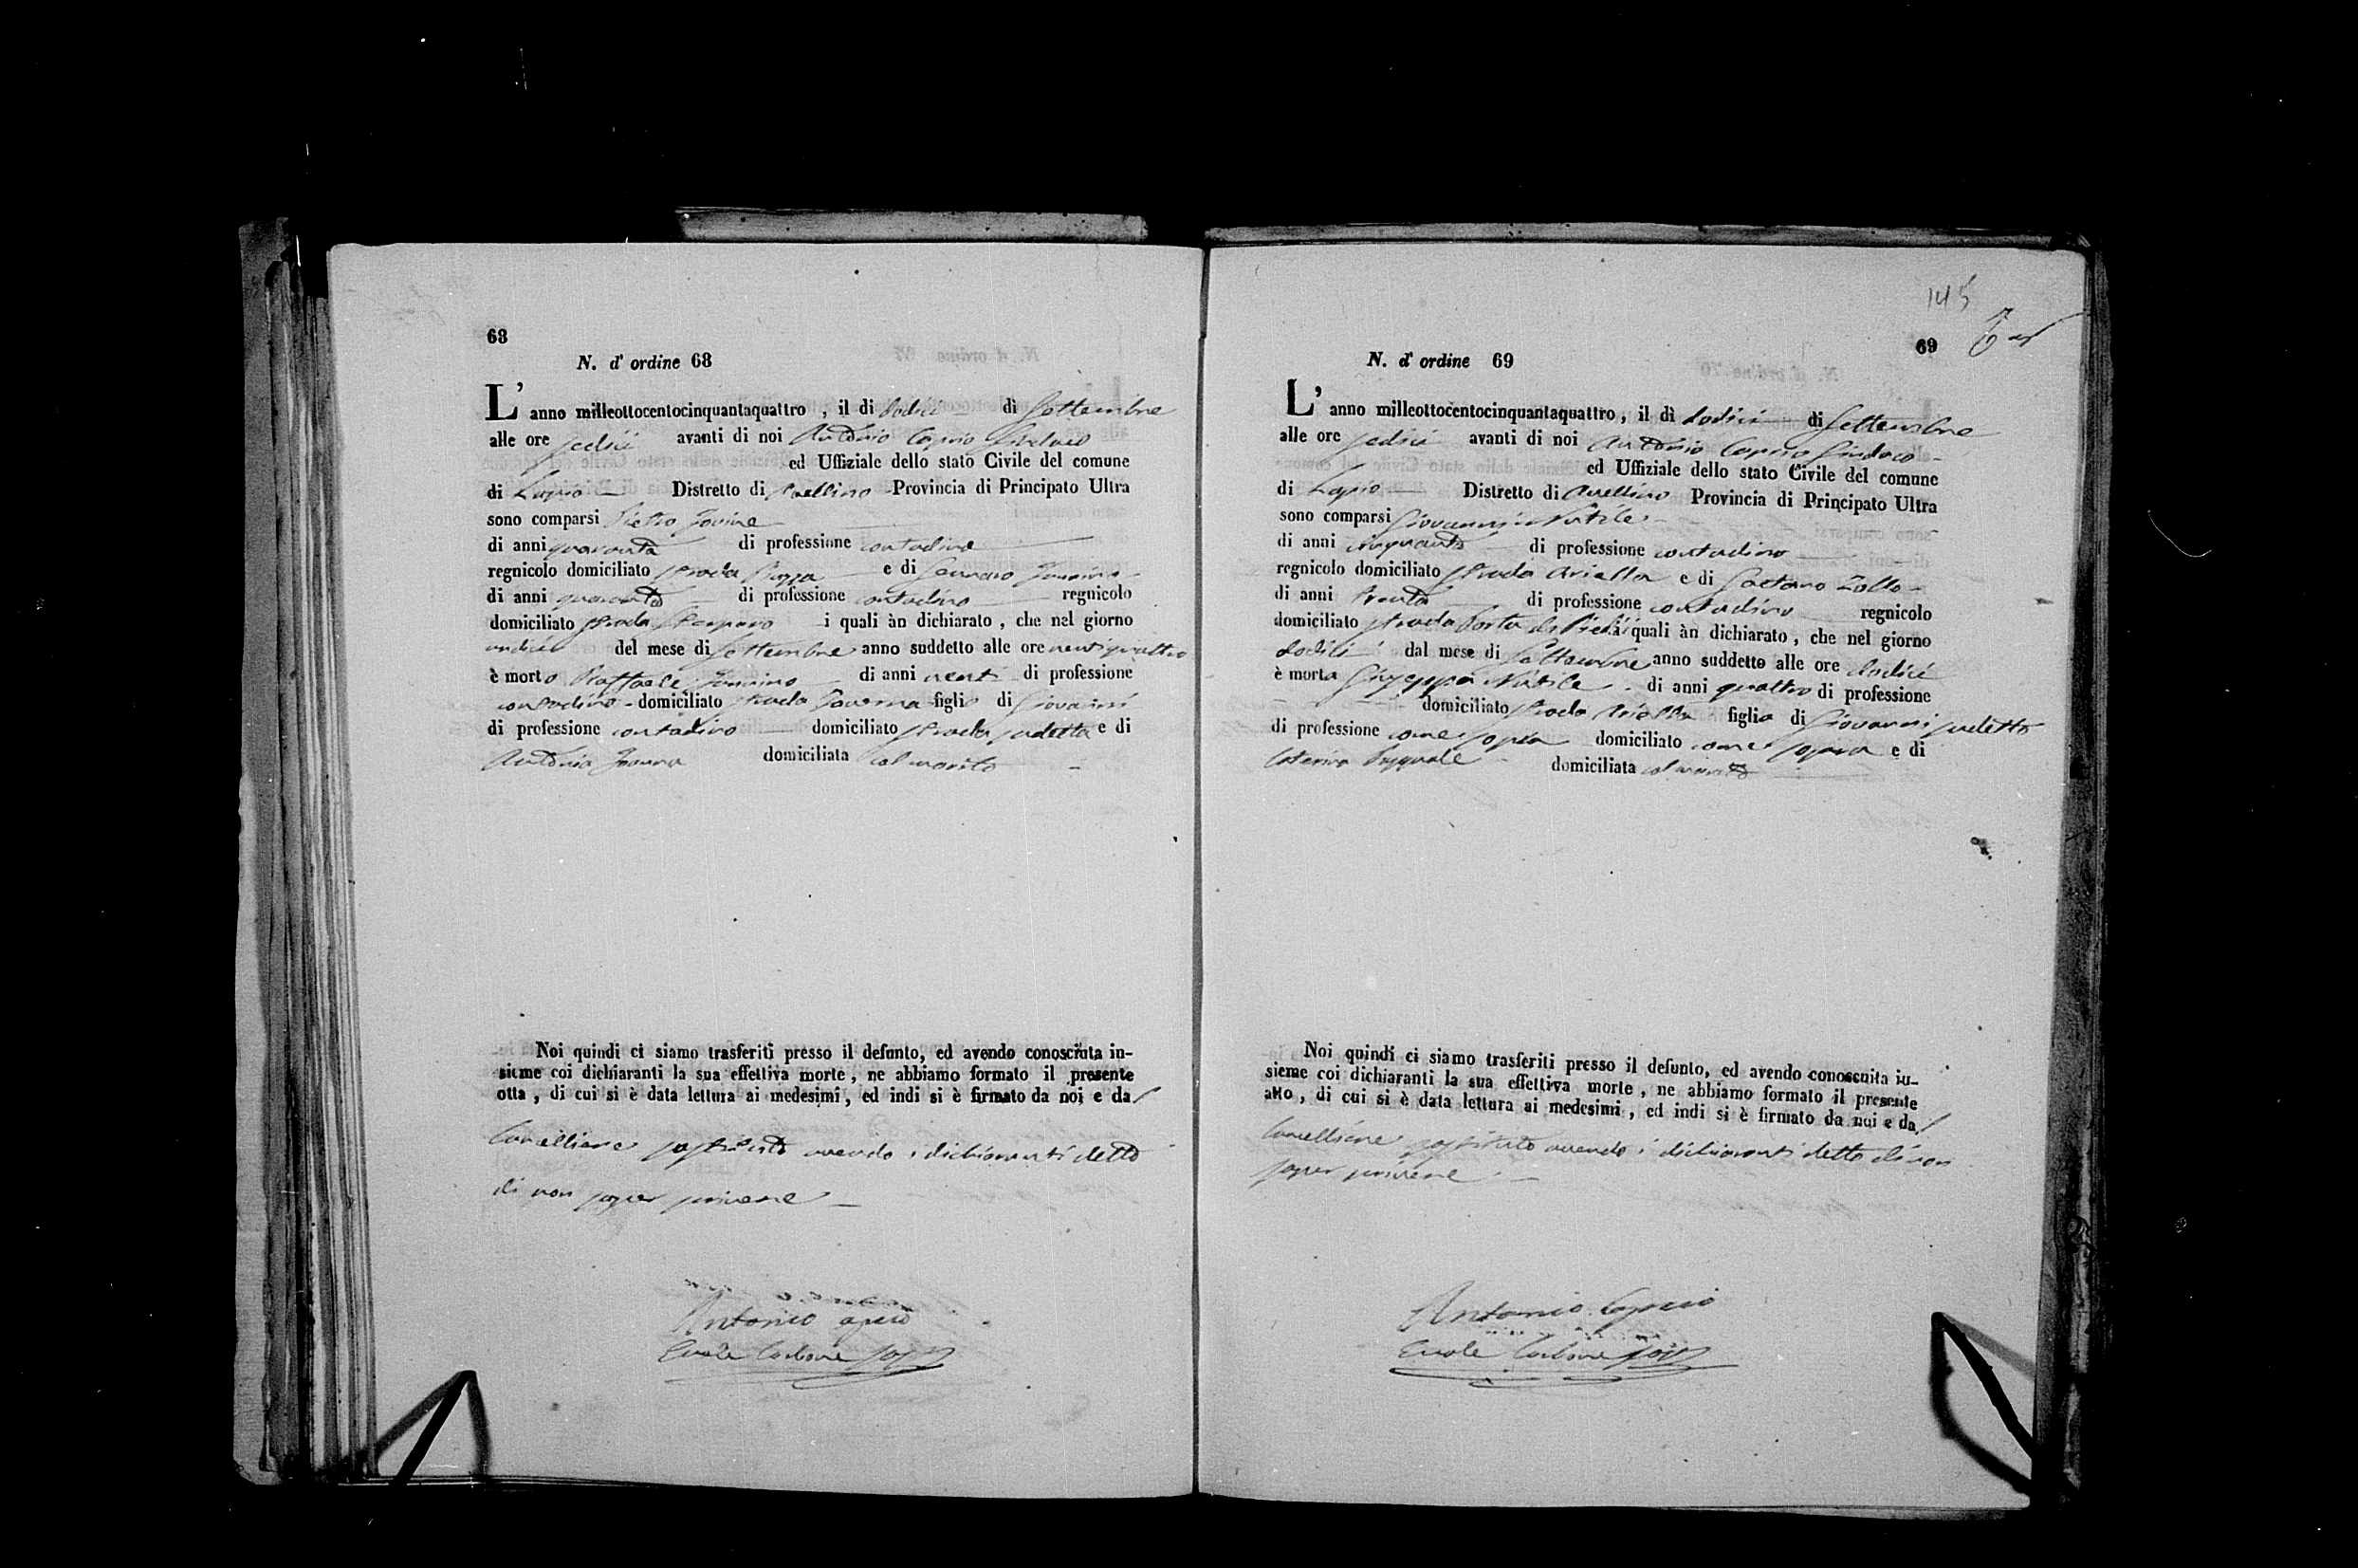 68
N. d' ordine 68
L' anno milleottocentocinquantaquattro, il di dodici di Settembre
alle ore sedici avanti di noi Antonio Caprio Sindaco
ed Uffiziale dello stato Civile del comune
di Lapio Distretto di Avellino Provincia di Principato Ultra
sono comparsi Pietro Iovine
di anni quaranta di professione contadino
regnicolo domiciliato strada Piazza e di Gennaro
di anni quaranta di professione contadino regnicolo
domiciliato strada i quali àn dichiarato, che nel giorno
undici del mese di Settembre anno suddetto alle ore ventiquattro
è morto Raffaele di anni venti di professione
contadino domiciliato strada Taverna figlio di Giovanni
di professione contadino domiciliato strada sudetta e di
Antonia domiciliata col marito
Noi quindi ci siamo trasferiti presso il defunto, ed avendo conosciuta in-
sieme coi dichiaranti la sua effettiva morte, ne abbiamo formato il presente
otta, di cui si è data lettura ai medesimi, ed indi si è firmato da noi e dal
Cancelliere sostituto avendo i dichiaranti detto
di non saper scrivere
Antonio Caprio
Carbone
145
69
N. d' ordine 69
L' anno milleottocentocinquantaquattro, il dì dodici di Settembre
alle ore sedici avanti di noi Antonio Caprio Sindaco
ed Uffiziale dello stato Civile del comune
di Lapio Distretto di Avellino Provincia di Principato Ultra
sono comparsi Giovanni Nutile
di anni cinquanta di professione contadino
regnicolo domiciliato strada Ariella e di Gaetano Zollo
di anni trenta di professione contadino regnicolo
domiciliato strada Porta di i quali àn dichiarato, che nel giorno
dodici dal mese di Settembre anno suddetto alle ore dodici
è morta Giuseppa Nutile di anni quattro di professione
domiciliato strada Ariella figlia di Giovanni sudetto
di professione come sopra domiciliato come sopra e di
Caterina domiciliata col marito
Noi quindi ci siamo trasferiti presso il defunto, ed avendo conoscuita in-
sieme coi dichiaranti la sua effettiva morte, ne abbiamo formato il presente
atto, di cui si è data lettura ai medesimi, ed indi si è firmato da noi e dal
Cancelliere sostituto avendo i dichiaranti detto di non
saper scrivere
Antonio Caprio
Carbone